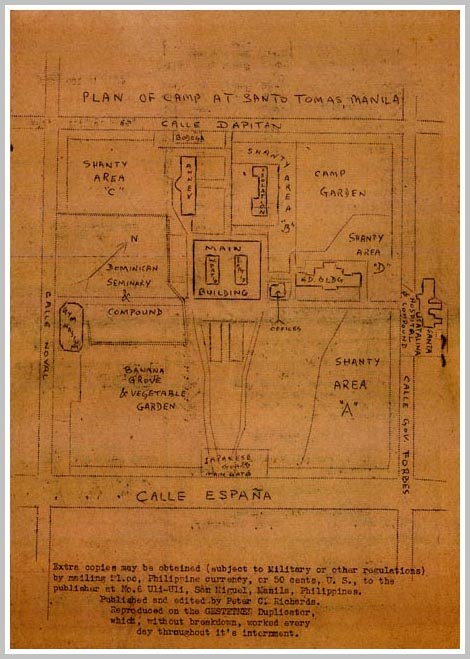 PLAN OF CAMP AT SANTO TOMAS, MANILA
CALLE DAPITAN
BODEGA
SHANTY
AREA
"C"
ANNEX
SHANTY
AREA
"B"
ISOLATION
CAMP
GARDEN
SHANTY
AREA
"D"
N
DOMINICAN
SEMINARY
&
COMPOUND
MAIN
BUILDING
ED. BLDG
OFFICES
SANTA
CATALINA
HOSPITAL
& COMPOUND
CALLE NOVAL
BANANA
GROVE
& VEGETABLE
GARDEN
SHANTY
AREA
"A"
CALLE GOV. FORBES
JAPANESE
GUARD
MAIN GATE
CALLE ESPAÑA
Extra copies may be obtained (subject to Military or other regulations)
by mailing P1.00, Philippine currency, or 50 cents, U. S., to the
publisher at No.6 Uli-Uli, San Miguel, Manila, Philippines.
Published and edited by Peter C. Richards.
Reproduced on the GESTETNER Duplicator,
which, without breakdown, worked every
day throughout it's internment.